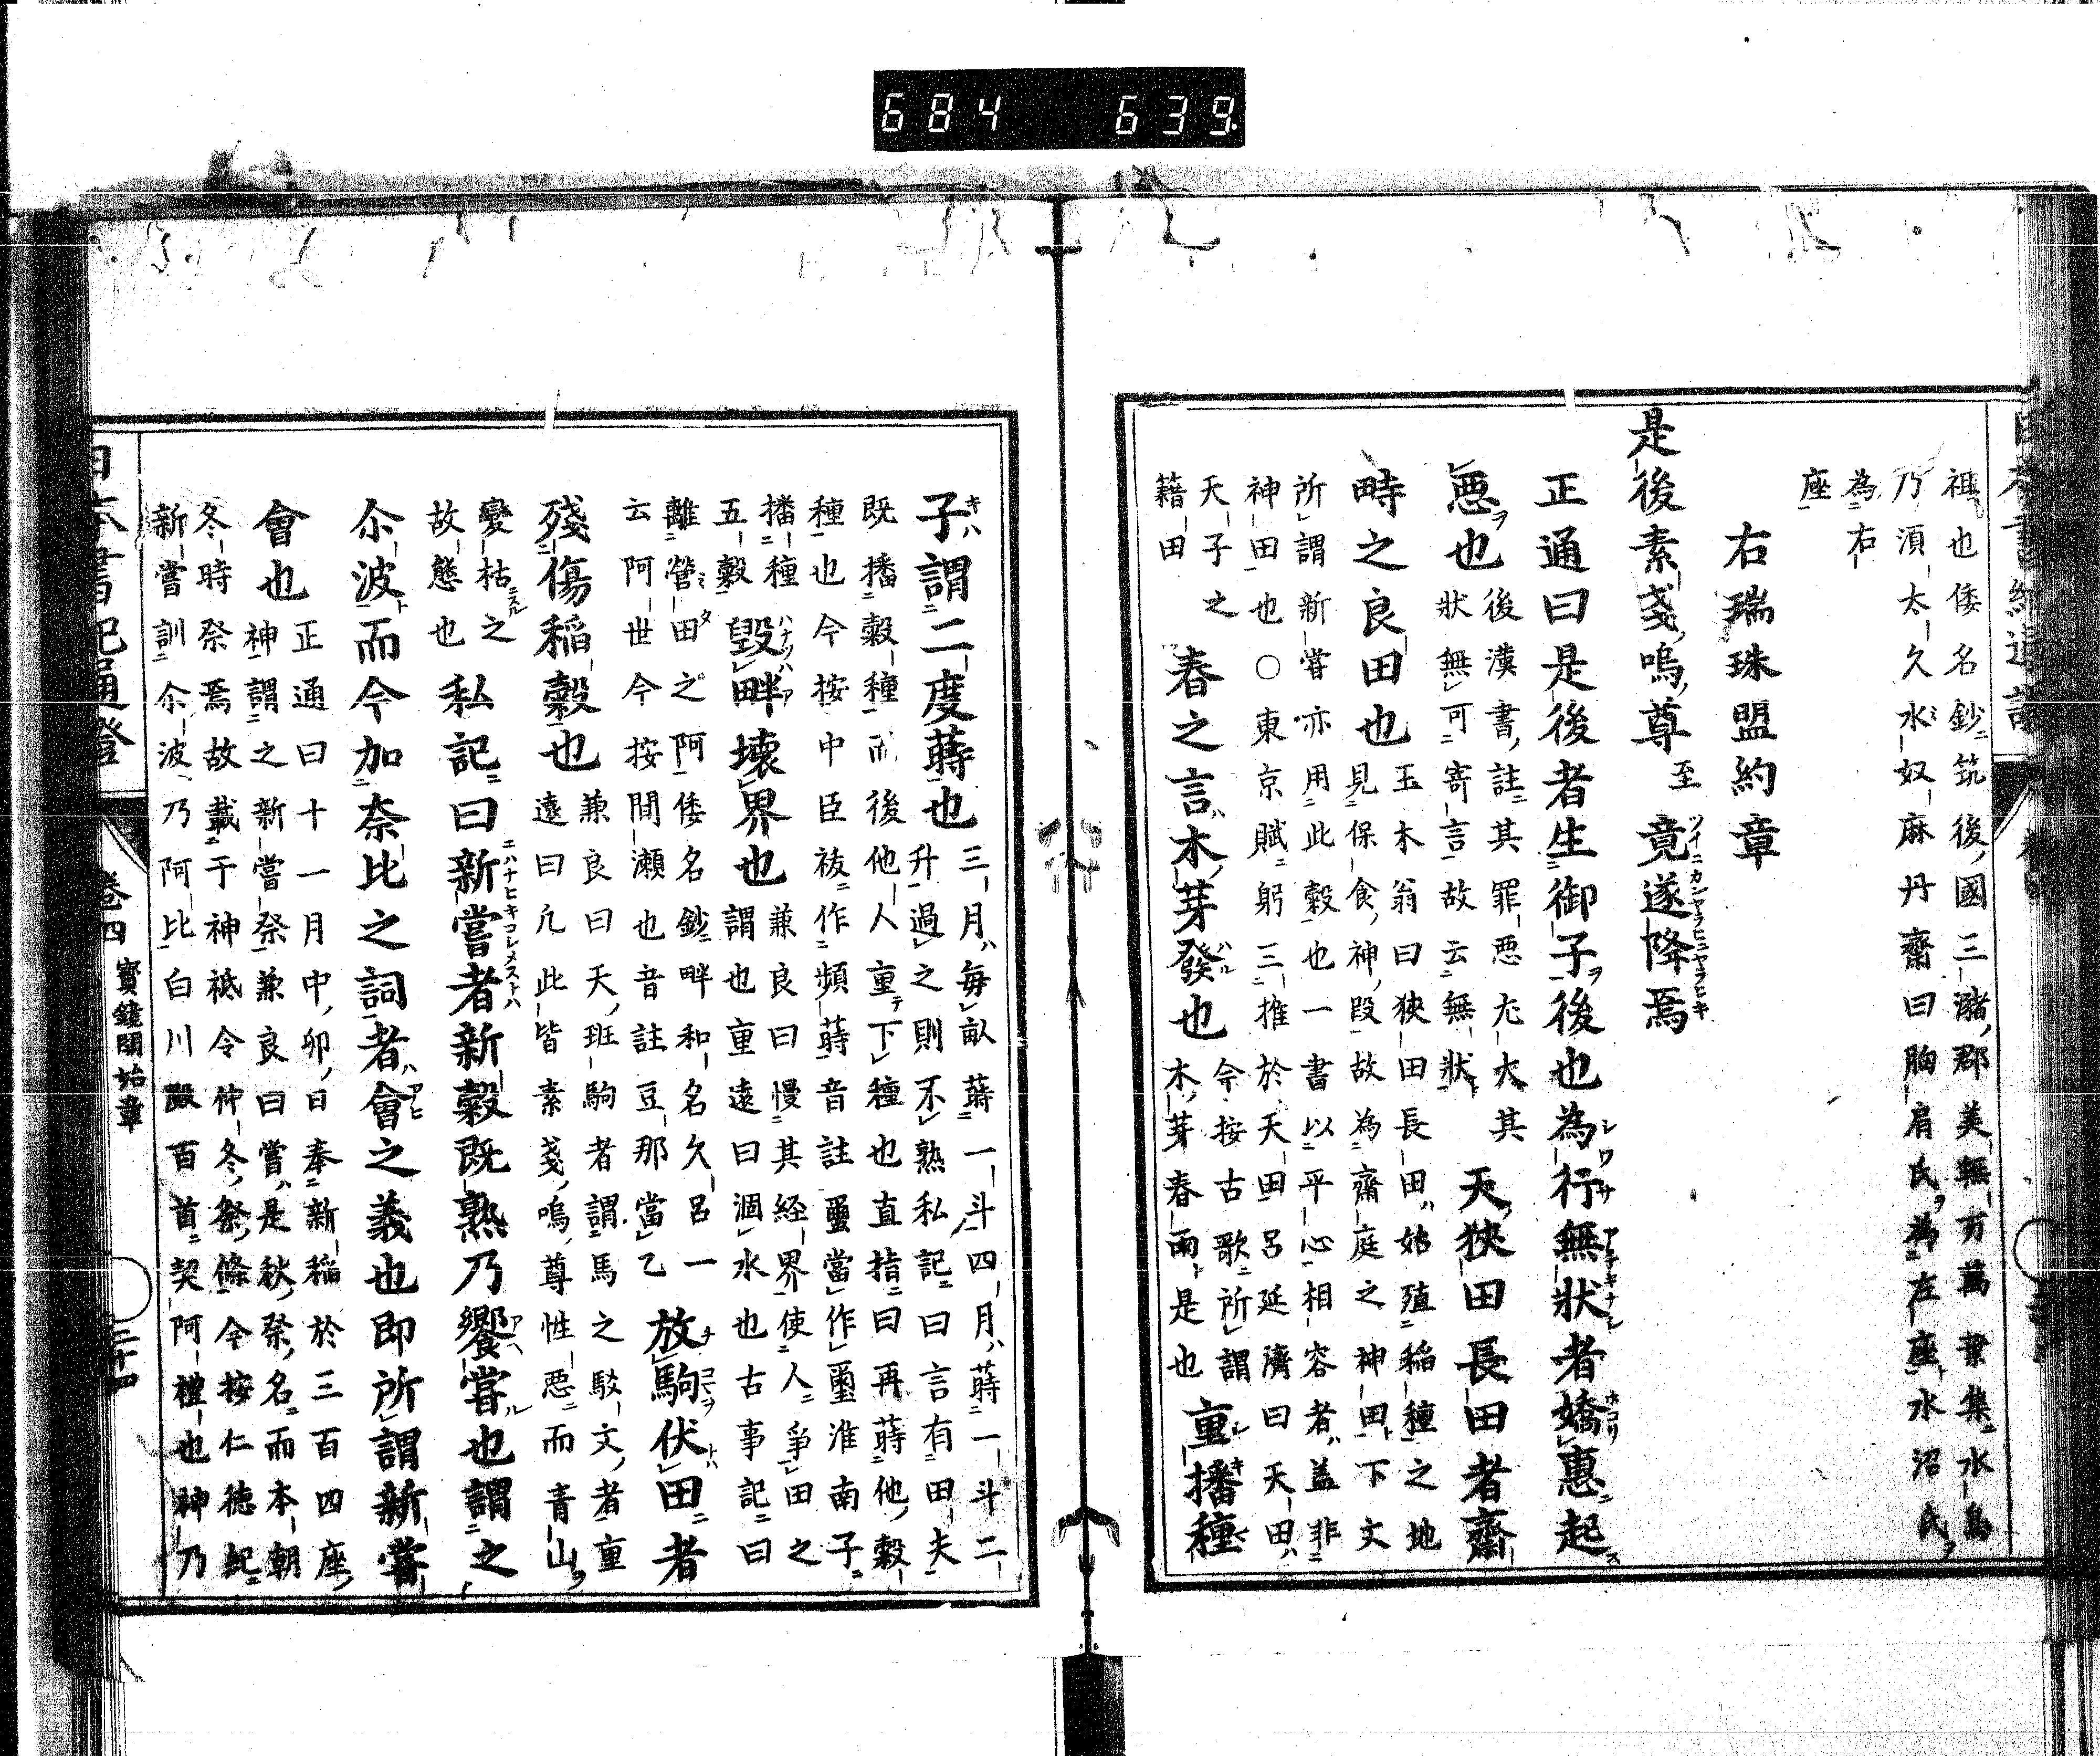 684 639
祖也倭名鈔筑後國三瀦郡
乃湏太久水奴麻丹齋曰胸肩氏為左座水沼氏
為右
座
右瑞珠盟約章
是後素戔嗚尊至竟遂降焉
正通曰是後者生御子後也為行無狀者嬌惠起
悪也
後漢書註其罪悪尤大其
狀無可寄言故云無狀
天狹田長田者齋
畤之良田也
玉木翁曰狹田長田始殖稲種之地
見保食神段故為齋庭之神田下文
所謂新嘗亦用此穀也一書以平心相容者盖非
神田也○東京賦躬三推於天田呂延濟曰天田
天子之
籍田
春之言木芽發也
今按古歌所謂
木芽春雨是也
重播種
子謂二度蒔也
三月毎畝蒔一斗四月蒔一斗二
升過之則不熟私記曰言有田夫
既播穀種而後他人重下種也直指曰再蒔他穀
種也今按中臣祓作頻蒔音註璽當作壐淮南子
播種
五穀
毀畔壊界也
兼良曰慢其経界使人爭田之
謂也重遠曰涸水也古事記曰
離營田之阿倭名鈔畔和名久呂一
云阿世今按間瀬也音註豆那當乙
放駒伏田者
殘傷稲穀也
兼良曰天班駒者謂馬之駁文者重
遠曰凢此皆素戔嗚尊性悪而青山
變枯之
故態也
私記曰新嘗者新穀既熟乃饗嘗也謂之
尒波而今加奈比之詞者會之義也即所謂新嘗
會也
正通曰十一月中卯日奉新稲於三百四座
神謂之新嘗祭兼良曰嘗是秋祭名而本朝
冬時祭焉故載于神祇令仲冬祭條今按仁德紀
新嘗訓尒波乃阿比白川殿百首契阿禮也神乃
卷四 寶鏡開始章 三十四